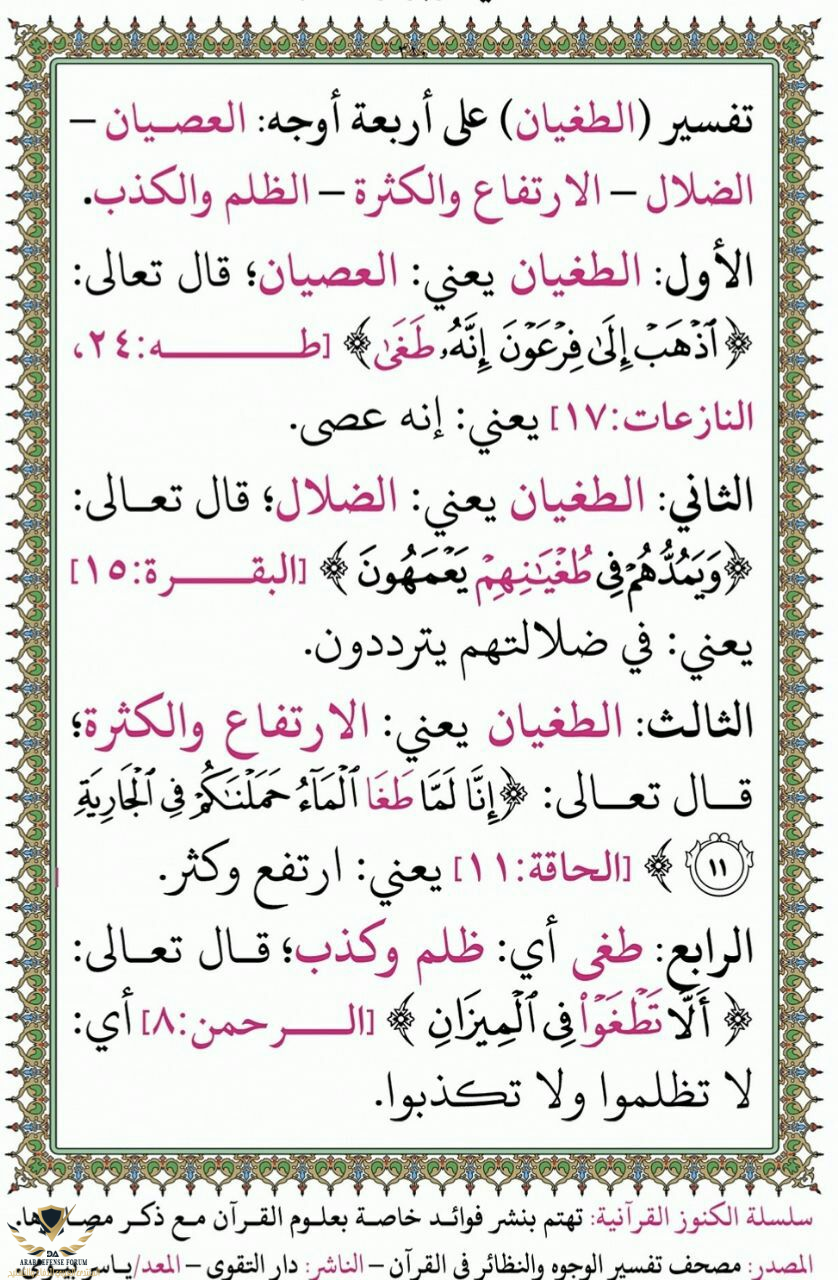 تفسير (الطغيان) على أربعة أوجه: العصيان –
الضلال – الارتفاع والكثرة – الظلم والكذب.
الأول: الطغيان يعني: العصيان؛ قال تعالى:
﴿ٱذۡهَبۡ إِلَىٰ فِرۡعَوۡنَ إِنَّهُۥ طَغَىٰ﴾ [طه:٢٤،
النازعات:١٧] يعني: إنه عصى.
الثاني: الطغيان يعني: الضلال؛ قال تعالى:
﴿وَيَمُدُّهُمۡ فِي طُغۡيَٰنِهِمۡ يَعۡمَهُونَ﴾ [البقرة:١٥]
يعني: في ضلالتهم يترددون.
الثالث: الطغيان يعني: الارتفاع والكثرة؛
قال تعالى: ﴿إِنَّا لَمَّا طَغَا ٱلۡمَآءُ حَمَلۡنَٰكُمۡ فِي ٱلۡجَارِيَةِ
١١﴾ [الحاقة:١١] يعني: ارتفع وكثر.
الرابع: طغى أي: ظلم وكذب؛ قال تعالى:
﴿أَلَّا تَطۡغَوۡاْ فِي ٱلۡمِيزَانِ﴾ [الرحمن:٨] أي:
لا تظلموا ولا تكذبوا.
سلسلة الكنوز القرآنية: تهتم بنشر فوائد خاصة بعلوم القرآن مع ذكر
المصدر: مصحف تفسير الوجوه والنظائر في القرآن – الناشر: دار التقوى – المعد/
DA
ARAB DEFENSE FORUM